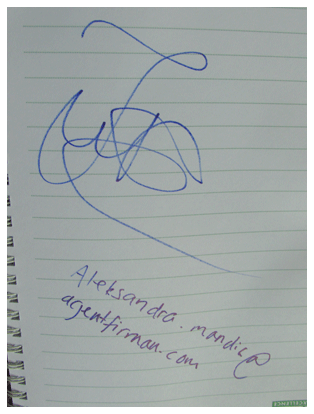 Aleksandra.mandic@
agentfirman.com